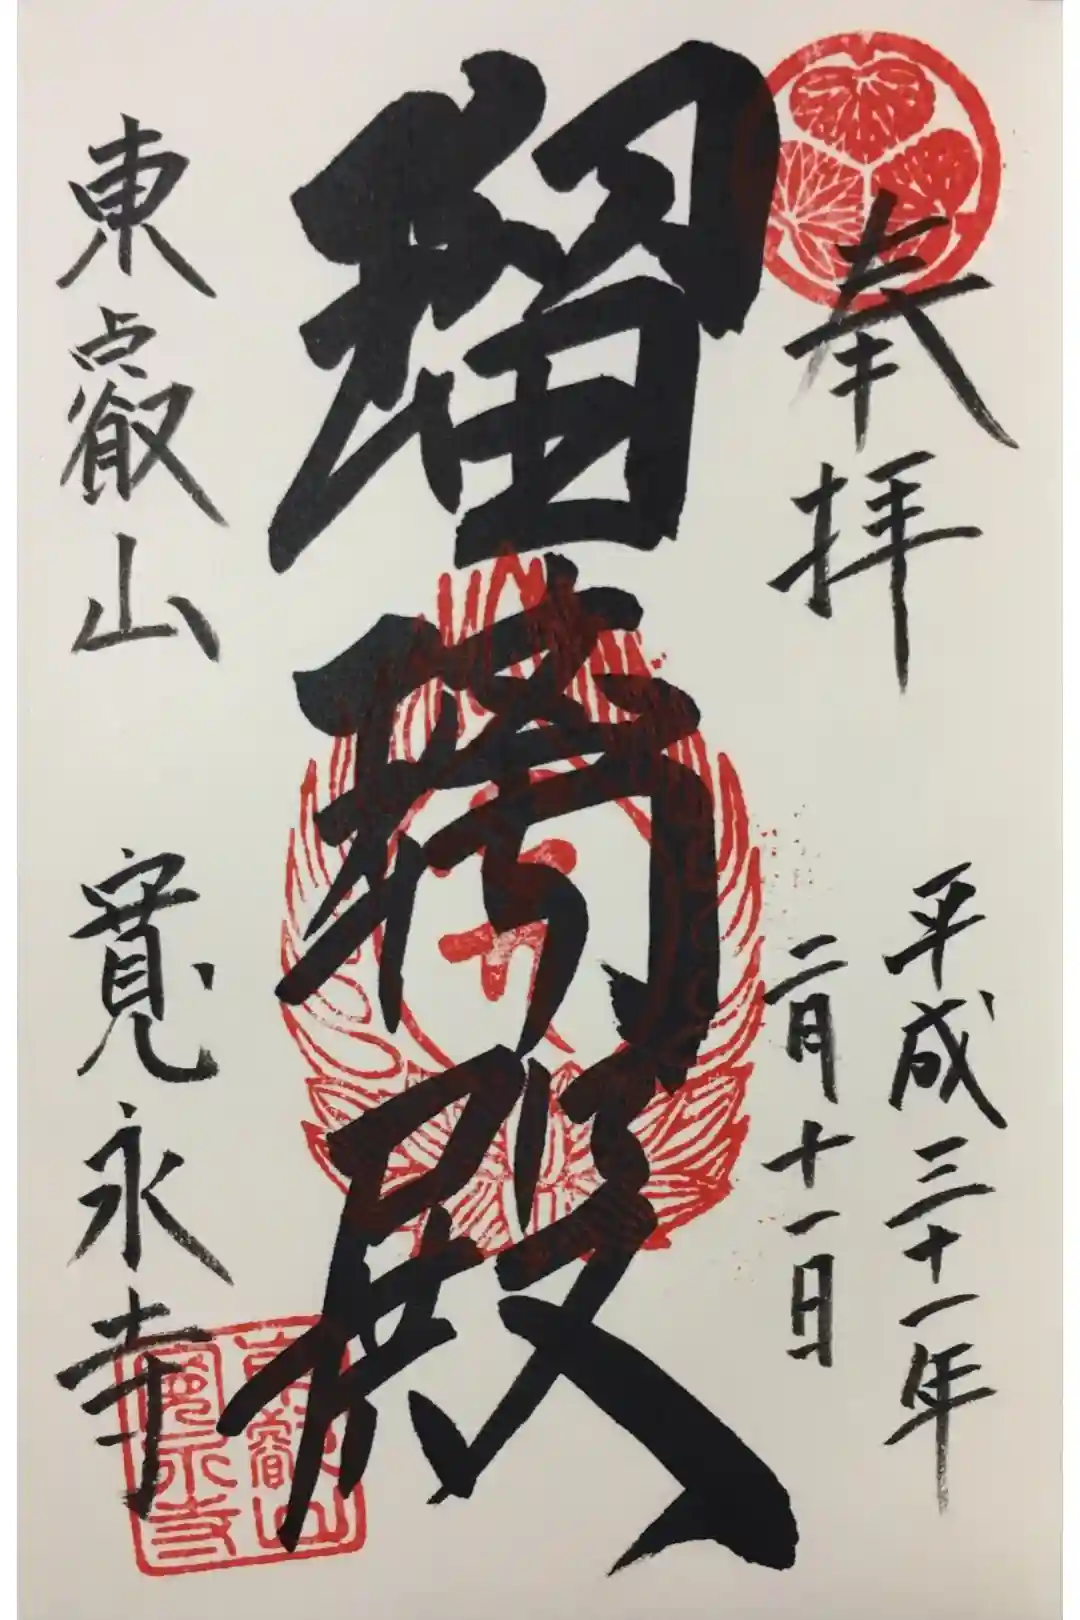 奉拝
平成三十一年
二月十一日
瑠璃殿
東叡山 寛永寺
東叡山
寛永寺